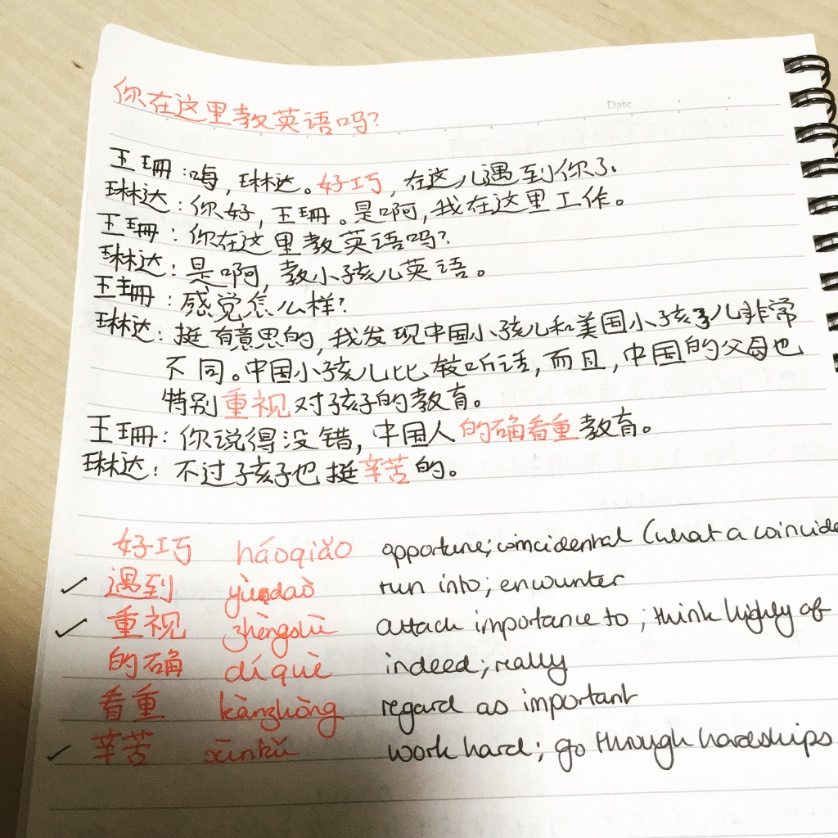 Date
你在这里教英语吗?
王珊:嗨,琳达。好巧,在这儿遇到你了。
琳达:你好,王珊。是啊,我在这里工作。
王珊:你在这里教英语吗?
琳达:是啊,教小孩儿英语。
王珊:感觉怎么样?
琳达:挺有意思的,我发现中国小孩儿和美国小孩儿非常
不同。中国小孩儿比较听话,而且,中国的父母也
特别重视对孩子的教育。
王珊:你说得没错,中国人的确看重教育。
琳达:不过孩子也挺辛苦的。
好巧 háoqiǎo opportune; coincidental (what a coincide
遇到 yùdaò run into; encounter
重视 zhèngshì attach importance to; think highly of
的确 díquè indeed; really
看重 kànzhòng regard as important
辛苦 xīnkǔ work hard; go through hardships